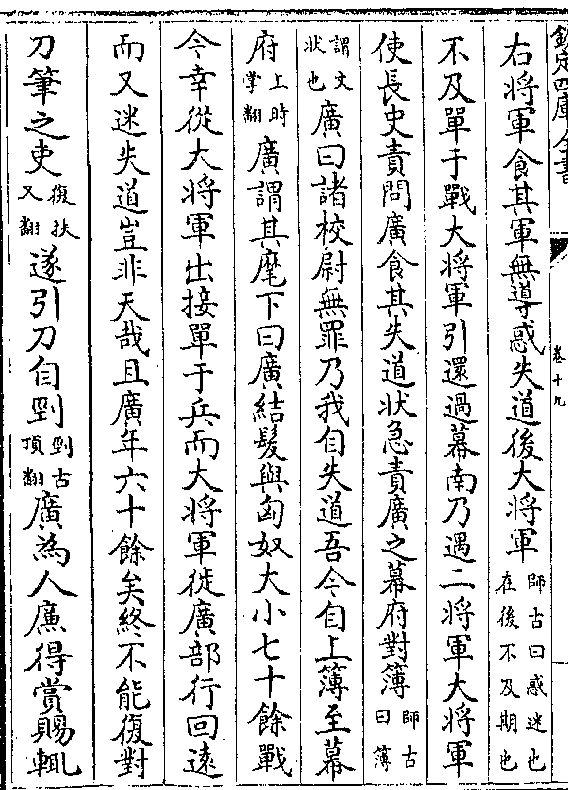 欽定四庫全書
卷十九
右將軍食其軍無導惑失道後大將軍師古曰惑迷也在後不及期也
不及單于戰大將軍引還過幕南乃遇二將軍大將軍
使長史責問廣食其失道狀急責廣之幕府對簿師古曰簿
謂文狀也廣曰諸校尉無罪乃我自失道吾今自上簿至幕
府上時掌翻廣謂其麾下曰廣結髮與匈奴大小七十餘戰
今幸從大將軍出接單于兵而大將軍徙廣部行回遠
而又迷失道豈非天哉且廣年六十餘矣終不能復對
刀筆之吏復扶又翻遂引刀自剄剄古頂翻廣為人廉得賞賜輒